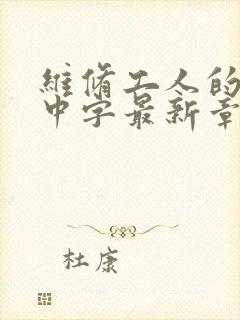 維修工人的
中字最新章
杜康